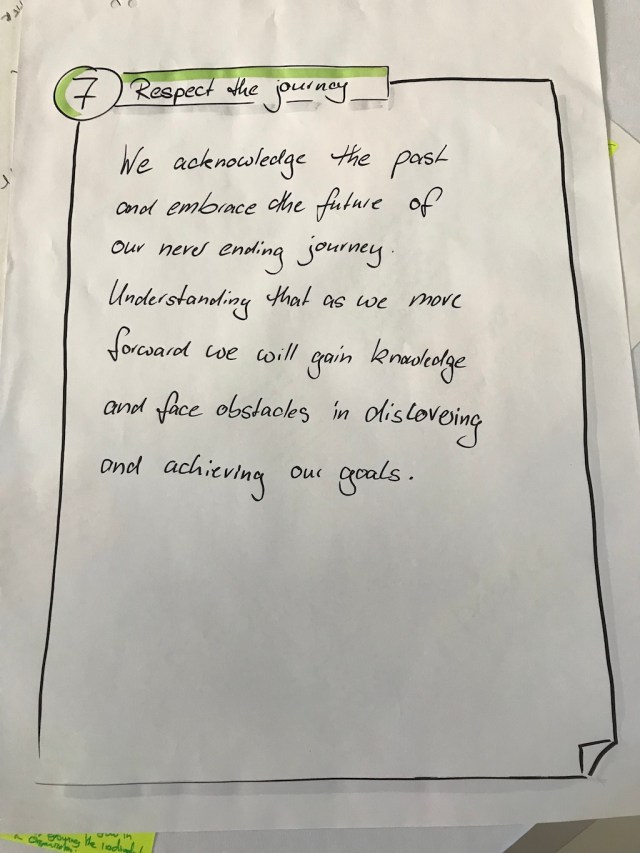 7 Respect the journey
We acknowledge the past
and embrace the future of
our never ending journey.
Understanding that as we move
forward we will gain knowledge
and face obstacles in discovering
and achieving our goals.